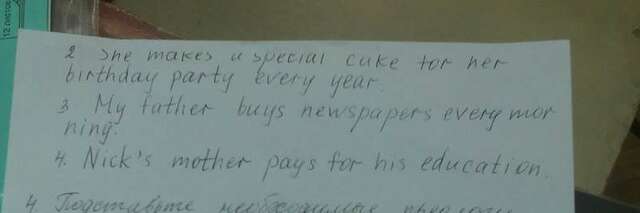 12 листов
2 She makes a special cake for her
birthday party every year.
3 My father buys newspapers every mor
ning.
4. Nick's mother pays for his education.
4. Подставьте необходимые предлоги